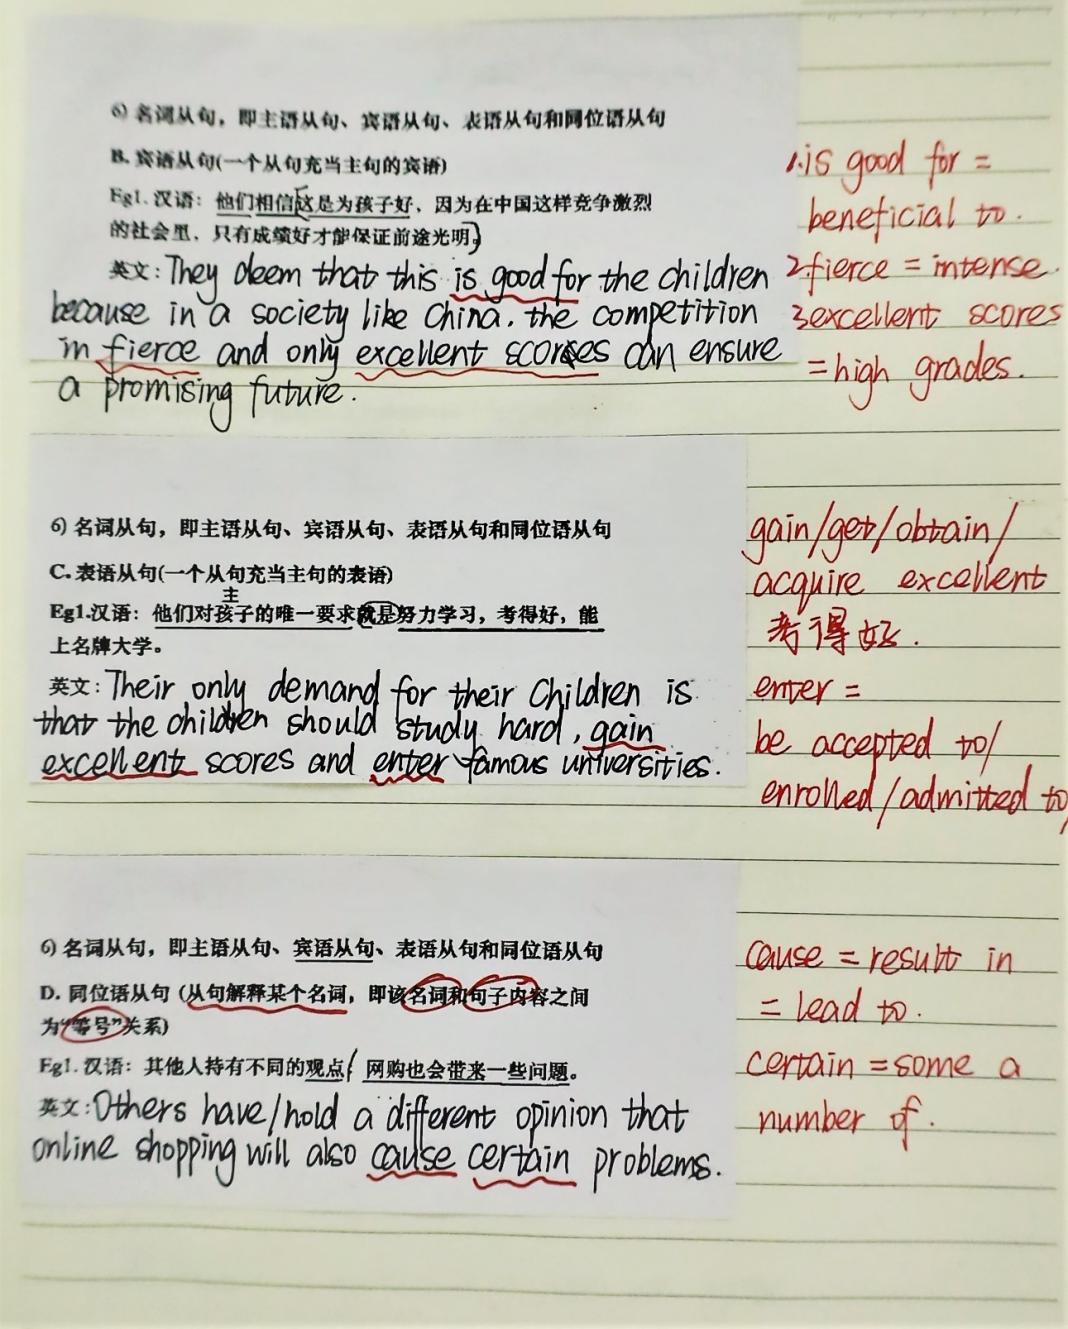 6) 名词从句，即主语从句、宾语从句、表语从句和同位语从句
B. 宾语从句(一个从句充当主句的宾语)
Eg1. 汉语：他们相信这是为孩子好，因为在中国这样竞争激烈
的社会里，只有成绩好才能保证前途光明。
英文：They deem that this is good for the children
because in a society like China. the competition
in fierce and only excellent scores can ensure
a promising future.
1.is good for =
beneficial to.
2fierce = intense.
3excellent scores
=high grades.
6) 名词从句，即主语从句、宾语从句、表语从句和同位语从句
C. 表语从句(一个从句充当主句的表语)
主
Eg1.汉语：他们对孩子的唯一要求就是努力学习，考得好，能
上名牌大学。
英文：Their only demand for their Children is
that the children should study hard, gain
excellent scores and enter famous universities.
gain/get/obtain/
acquire excellent
考得好.
enter =
be accepted to/
enrolled/admitted to/
6) 名词从句，即主语从句、宾语从句、表语从句和同位语从句
D. 同位语从句（从句解释某个名词，即该名词和句子内容之间
为“等号”关系)
Eg1. 汉语：其他人持有不同的观点/ 网购也会带来一些问题。
英文：Others have/hold a different opinion that
online shopping will also cause certain problems.
cause = result in
= lead to.
certain =some a
number of.